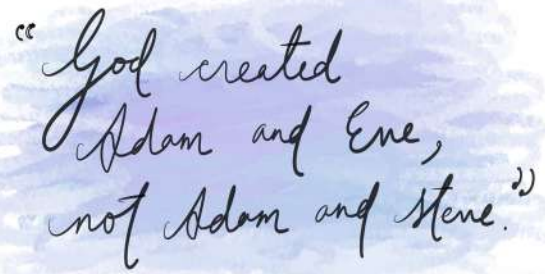 “God created
Adam and Eve,
not Adam and Steve.”